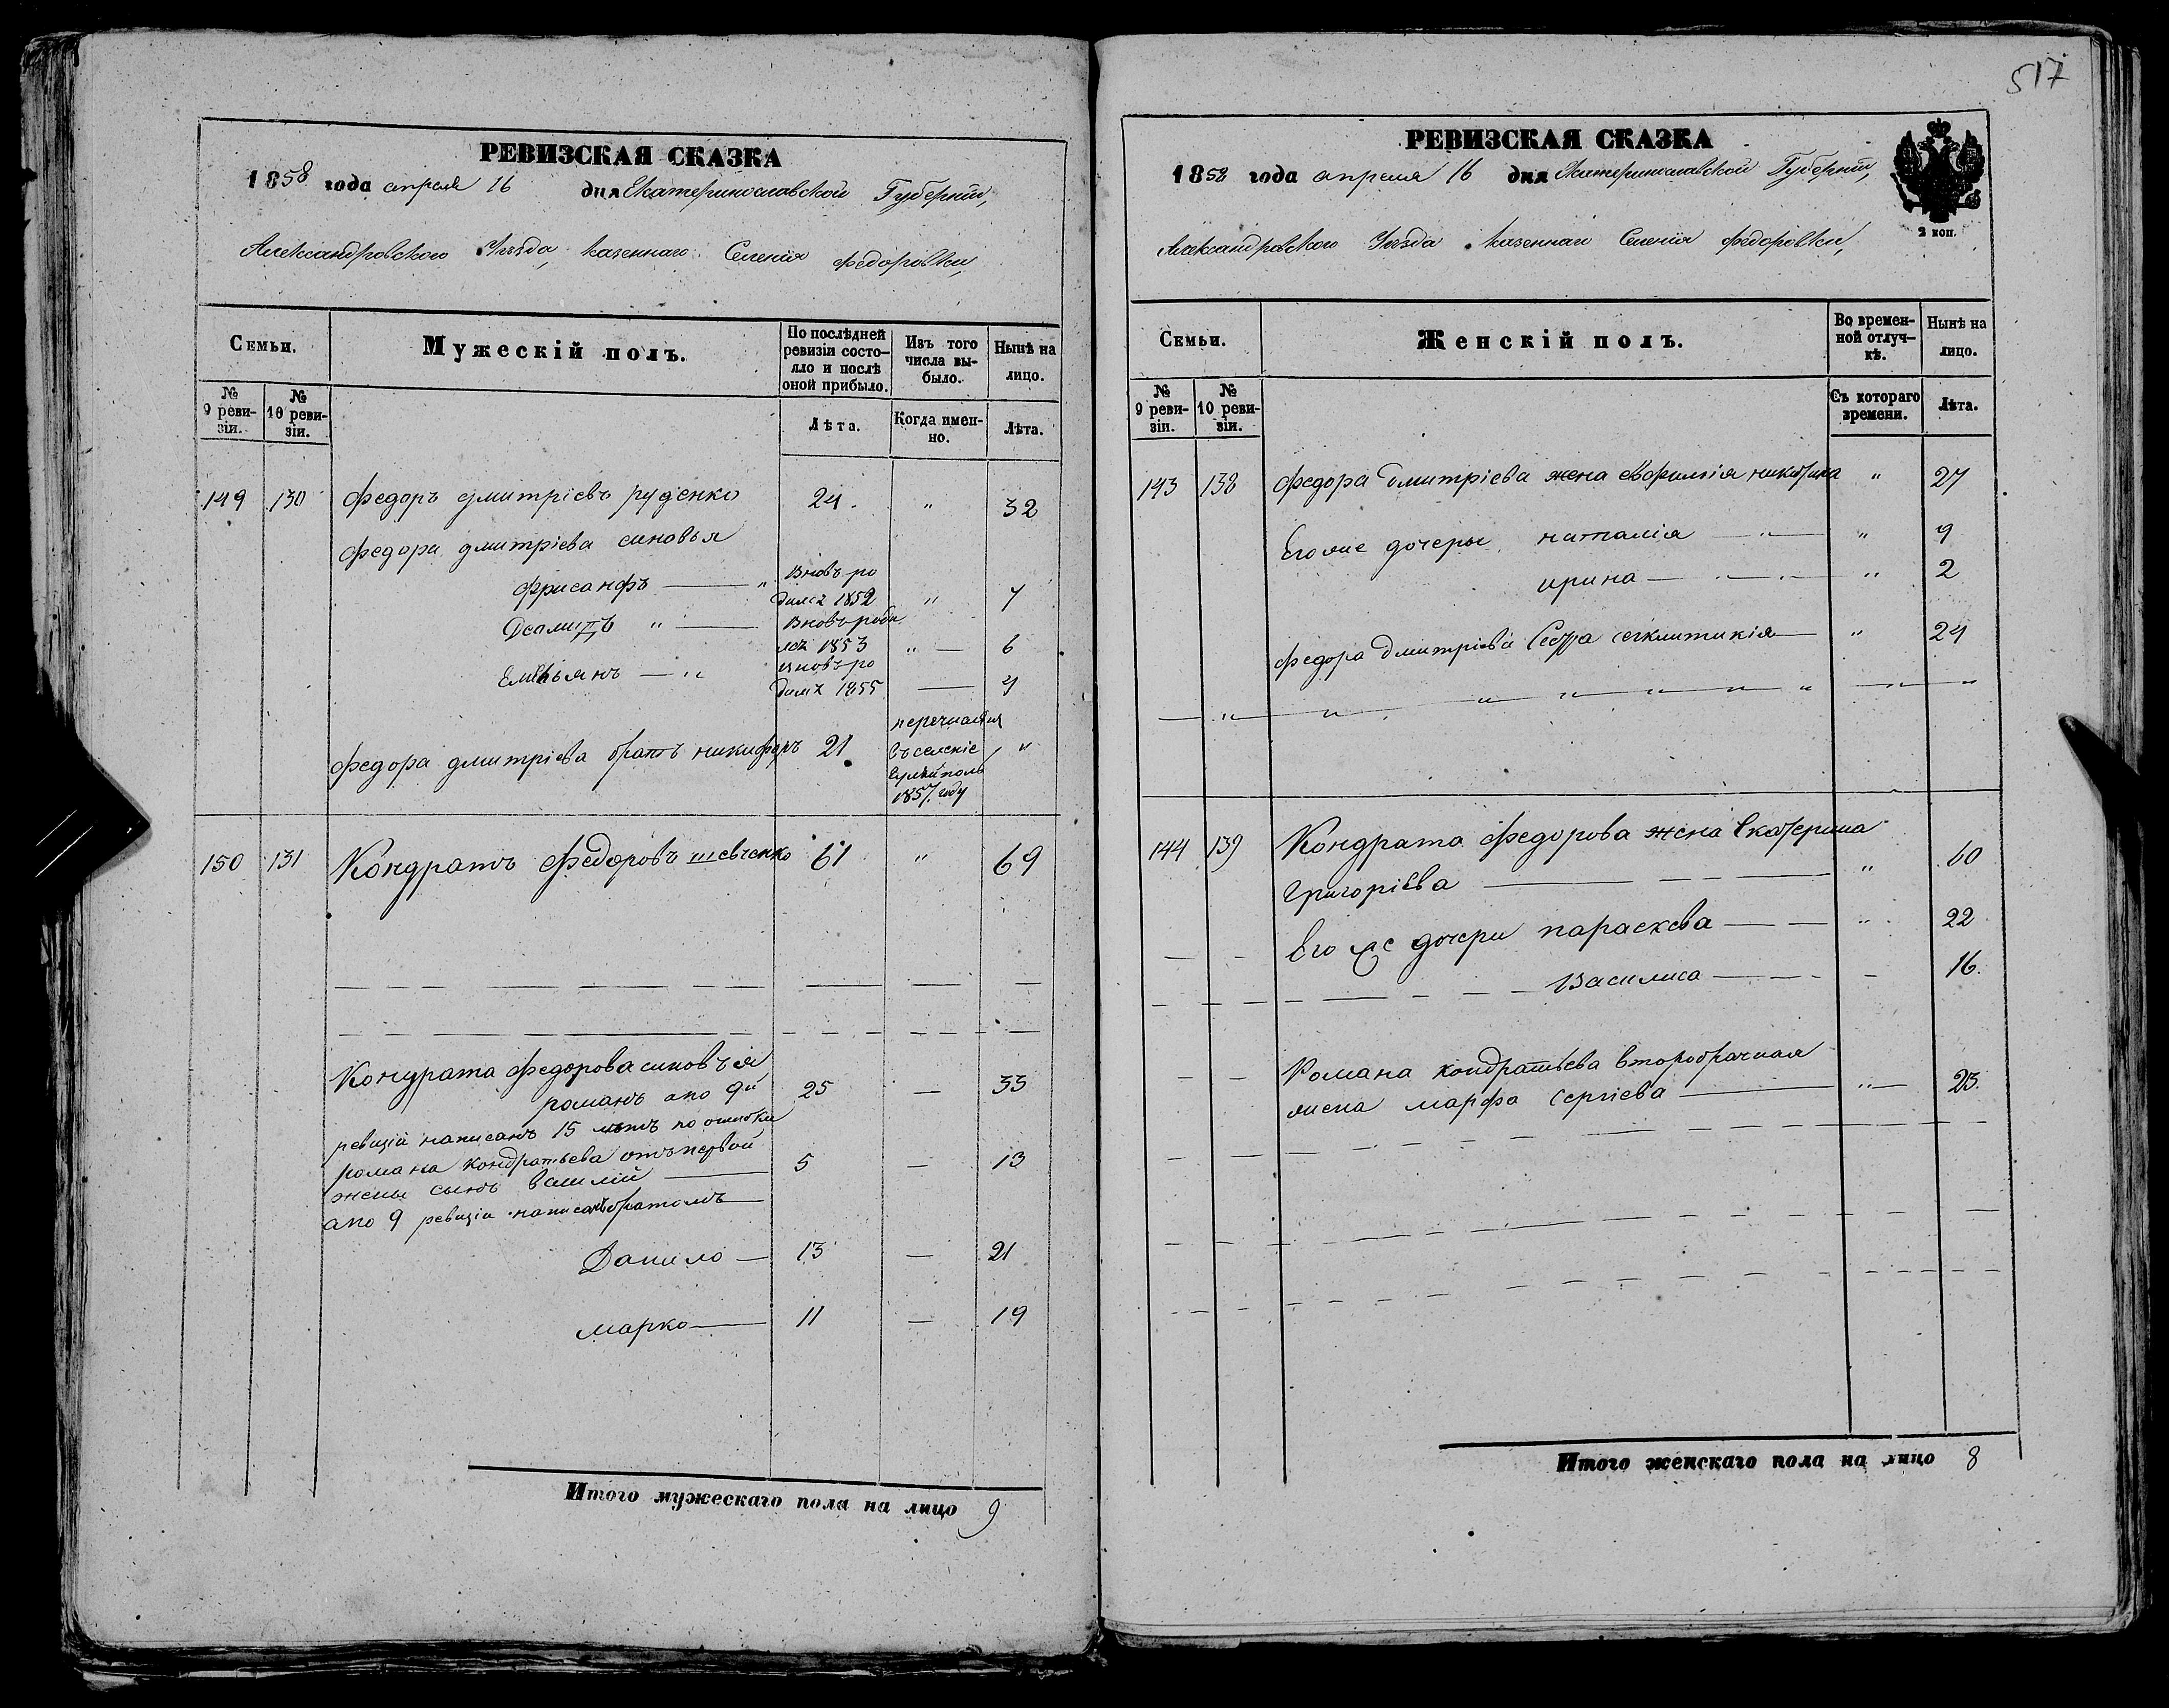 РЕВИЗСКАЯ СКАЗКА
1858 года апреля 16 дня Екатеринославской Губерніи,
Александровского Уезда, казеннаго Селенія Федоровки,
Семьи.
Мужескій полъ.
По послѣдней ревизіи состо-
яло и послѣ
оной прибыло.
Изъ того
числа вы-
было.
Нынѣ на
лицо.
№
9 реви-
зіи.
№
10 реви-
зіи.
Лѣта.
Когда имен-
но.
Лѣта.
149 130 Федоръ дмитріевъ руденко 24 " 32
Федора дмитріева синовья
Вновь ро
Фрисанфъ " дилсх 1852 " 7
Вновь роди
" лсх 1853 " 6
вновь ро
Емельянъ " дилсх 1855 4
Федора дмитріева братъ никифоръ 21 "
въ селеніе
1857 году
150 131 Кондратъ Федоровъ шевченко 61 " 69
Кондрата Федорова синовъя
романъ апо 9й 25 33
ревизіи написанъ 15 летъ по ошибки
романа кондратьева отъ первой
жены сынъ василій 5 13
апо 9 ревизіи написанъ братомъ
Данило 13 21
марко 11 19
Итого мужескаго пола на лицо 9
517
РЕВИЗСКАЯ СКАЗКА
1858 года апреля 16 дня Екатеринославской Губерніи,
2 коп.
Александровского Уезда казеннаго Селенія Федоровки,
Семьи.
Женскій полъ.
Во времен-
ной отлуч-
кѣ.
Нынѣ на
лицо.
№
9 реви-
зіи.
№
10 реви-
зіи.
Съ котораго
времени.
Лѣта.
143 138 Федора Дмитріева жена " 27
Его же дочеры наталія " " 9
ирина " " " 2
Федора Дмитріева Сестра секлитикія " 24
" " " " " " " " "
144 139 Кондрата Федорова жена Екатерина
Григоріева " 60
Его же дочери параскева " 22
Василиса 16.
Романа кондратьева второбрачная
жена марфа Сергіева " 23.
Итого женскаго пола на лицо 8